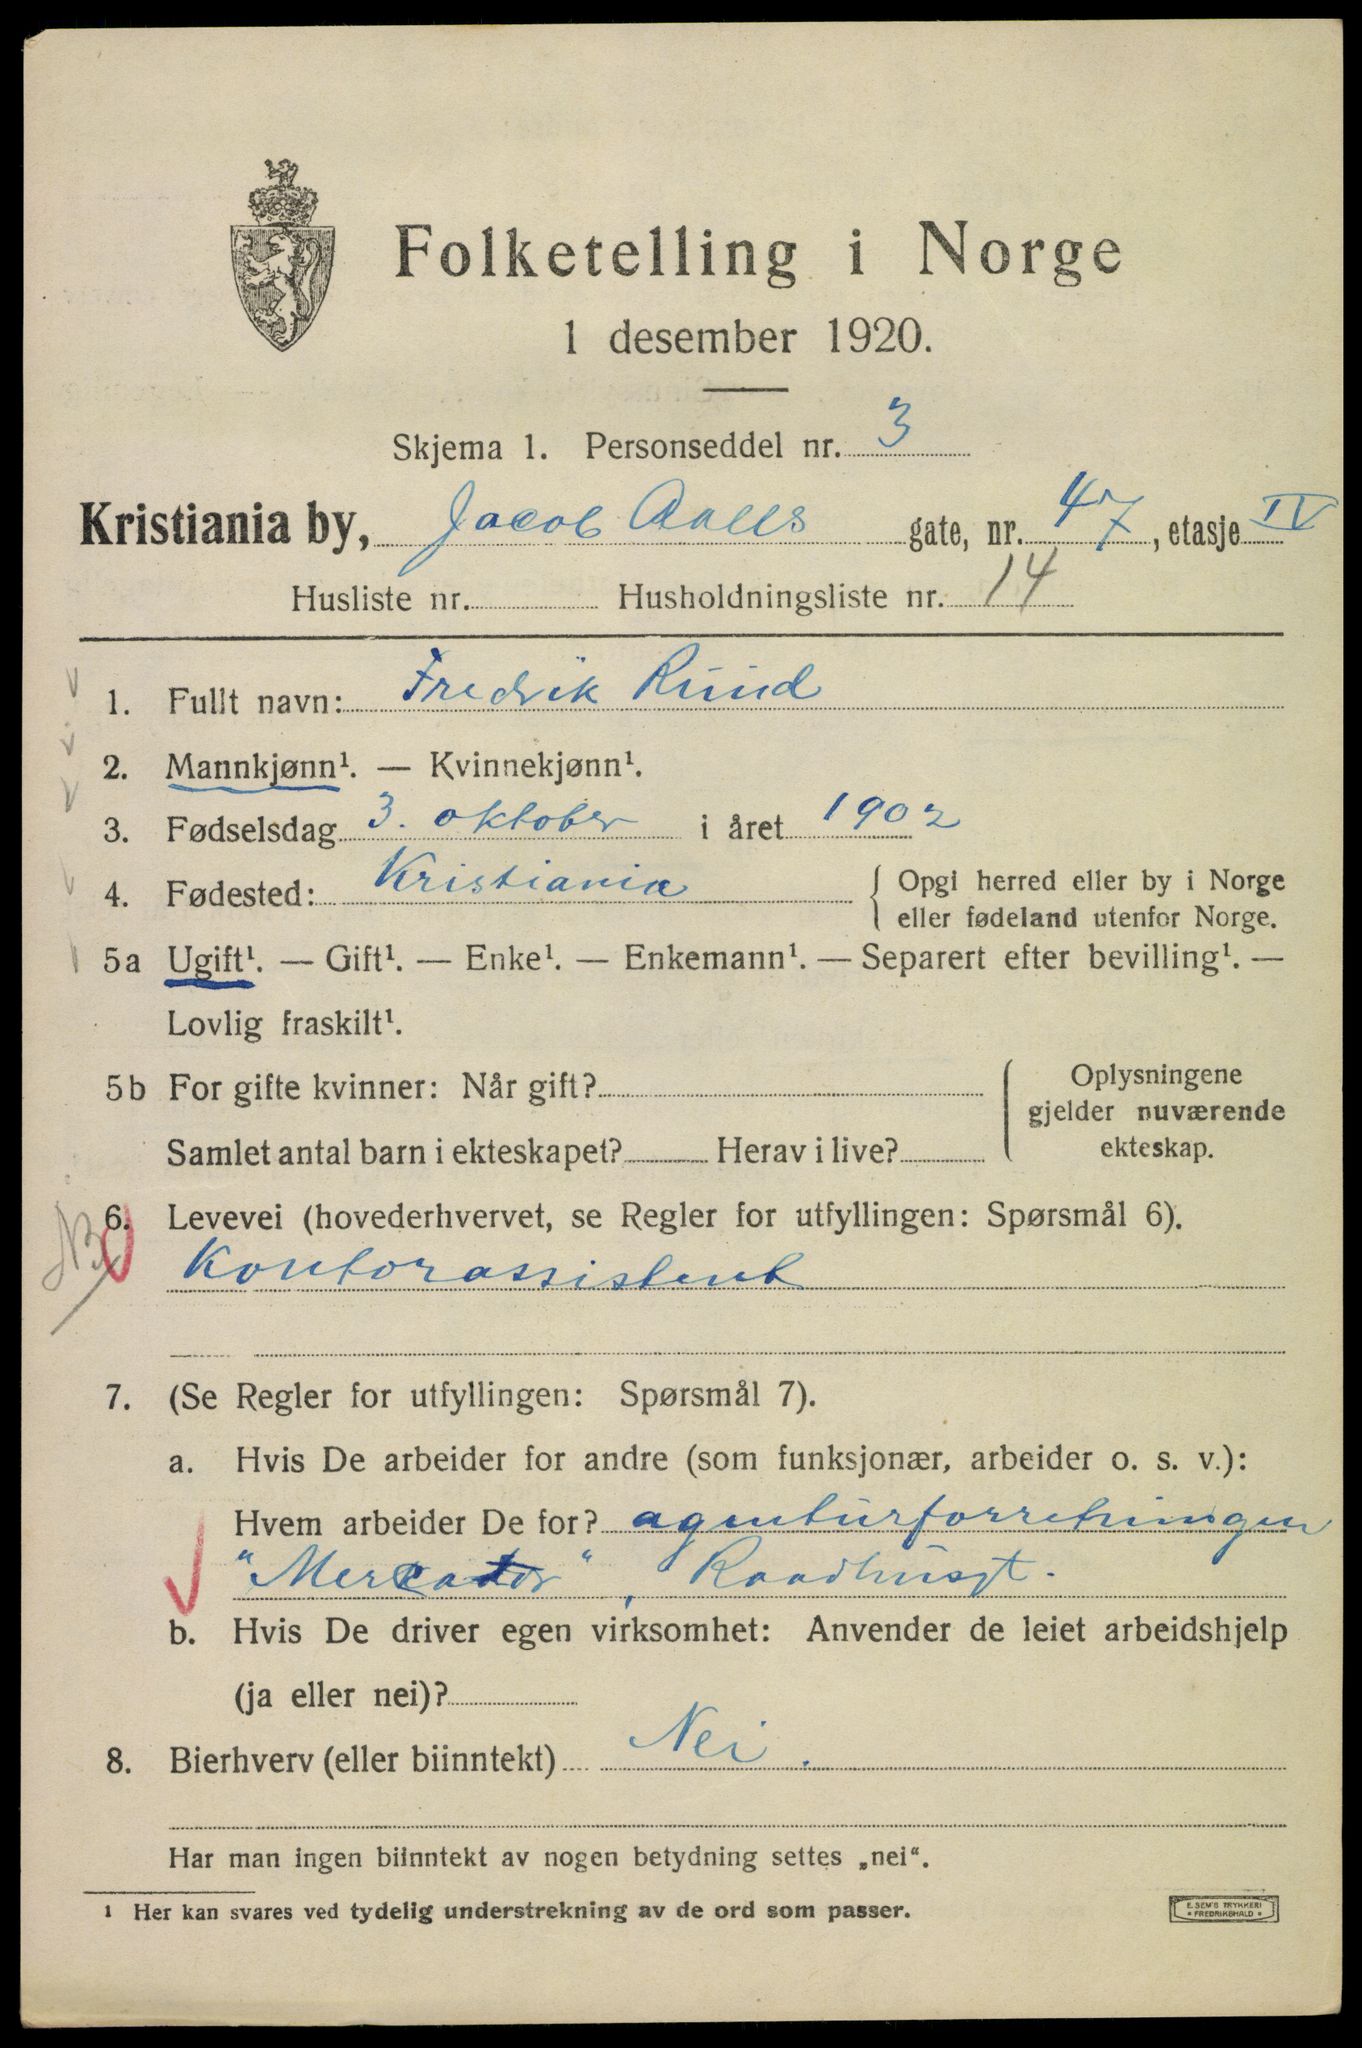 Folketelling i Norge
1 desember 1920.
Skjema 1. Personseddel nr. 3
Kristiania by, Jacob Aalls gate, nr. 47, etasje IV
Husliste nr. Husholdningsliste nr. 14
1. Fullt navn: Fredrik Ruud
2. Mannkjønn¹. — Kvinnekjønn¹.
3. Fødselsdag 3. oktober i året 1902
4. Fødested: Kristiania { Opgi herred eller by i Norge
eller fødeland utenfor Norge.
5a Ugift¹. — Gift¹. — Enke¹. — Enkemann¹. — Separert efter bevilling¹. —
Lovlig fraskilt¹.
5b For gifte kvinner: Når gift? { Oplysningene
gjelder nuværende
Samlet antal barn i ekteskapet? Herav i live? ekteskap.
NB
6. Levevei (hovederhvervet, se Regler for utfyllingen: Spørsmål 6).
Kontorassistent
7. (Se Regler for utfyllingen: Spørsmål 7).
a. Hvis De arbeider for andre (som funksjonær, arbeider o. s. v.):
Hvem arbeider De for? agenturforretningen
"Mercator", Raadhusgt.
b. Hvis De driver egen virksomhet: Anvender de leiet arbeidshjelp
(ja eller nei)?
8. Bierhverv (eller biinntekt) Nei.
Har man ingen biinntekt av nogen betydning settes „nei“.
¹ Her kan svares ved tydelig understrekning av de ord som passer.
E. SEM'S TRYKKERI
* FREDRIKSHALD *